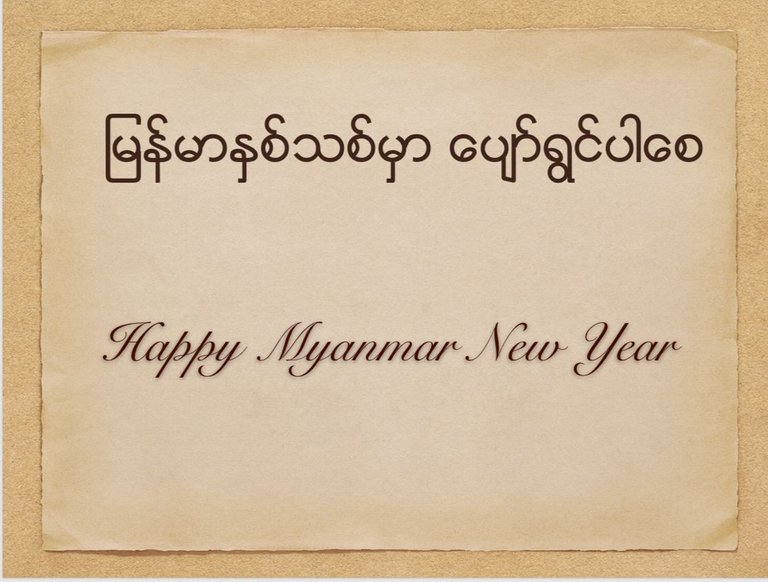 မြန်မာနှစ်သစ်မှာ ပျော်ရွှင်ပါစေ
Happy Myanmar New Year